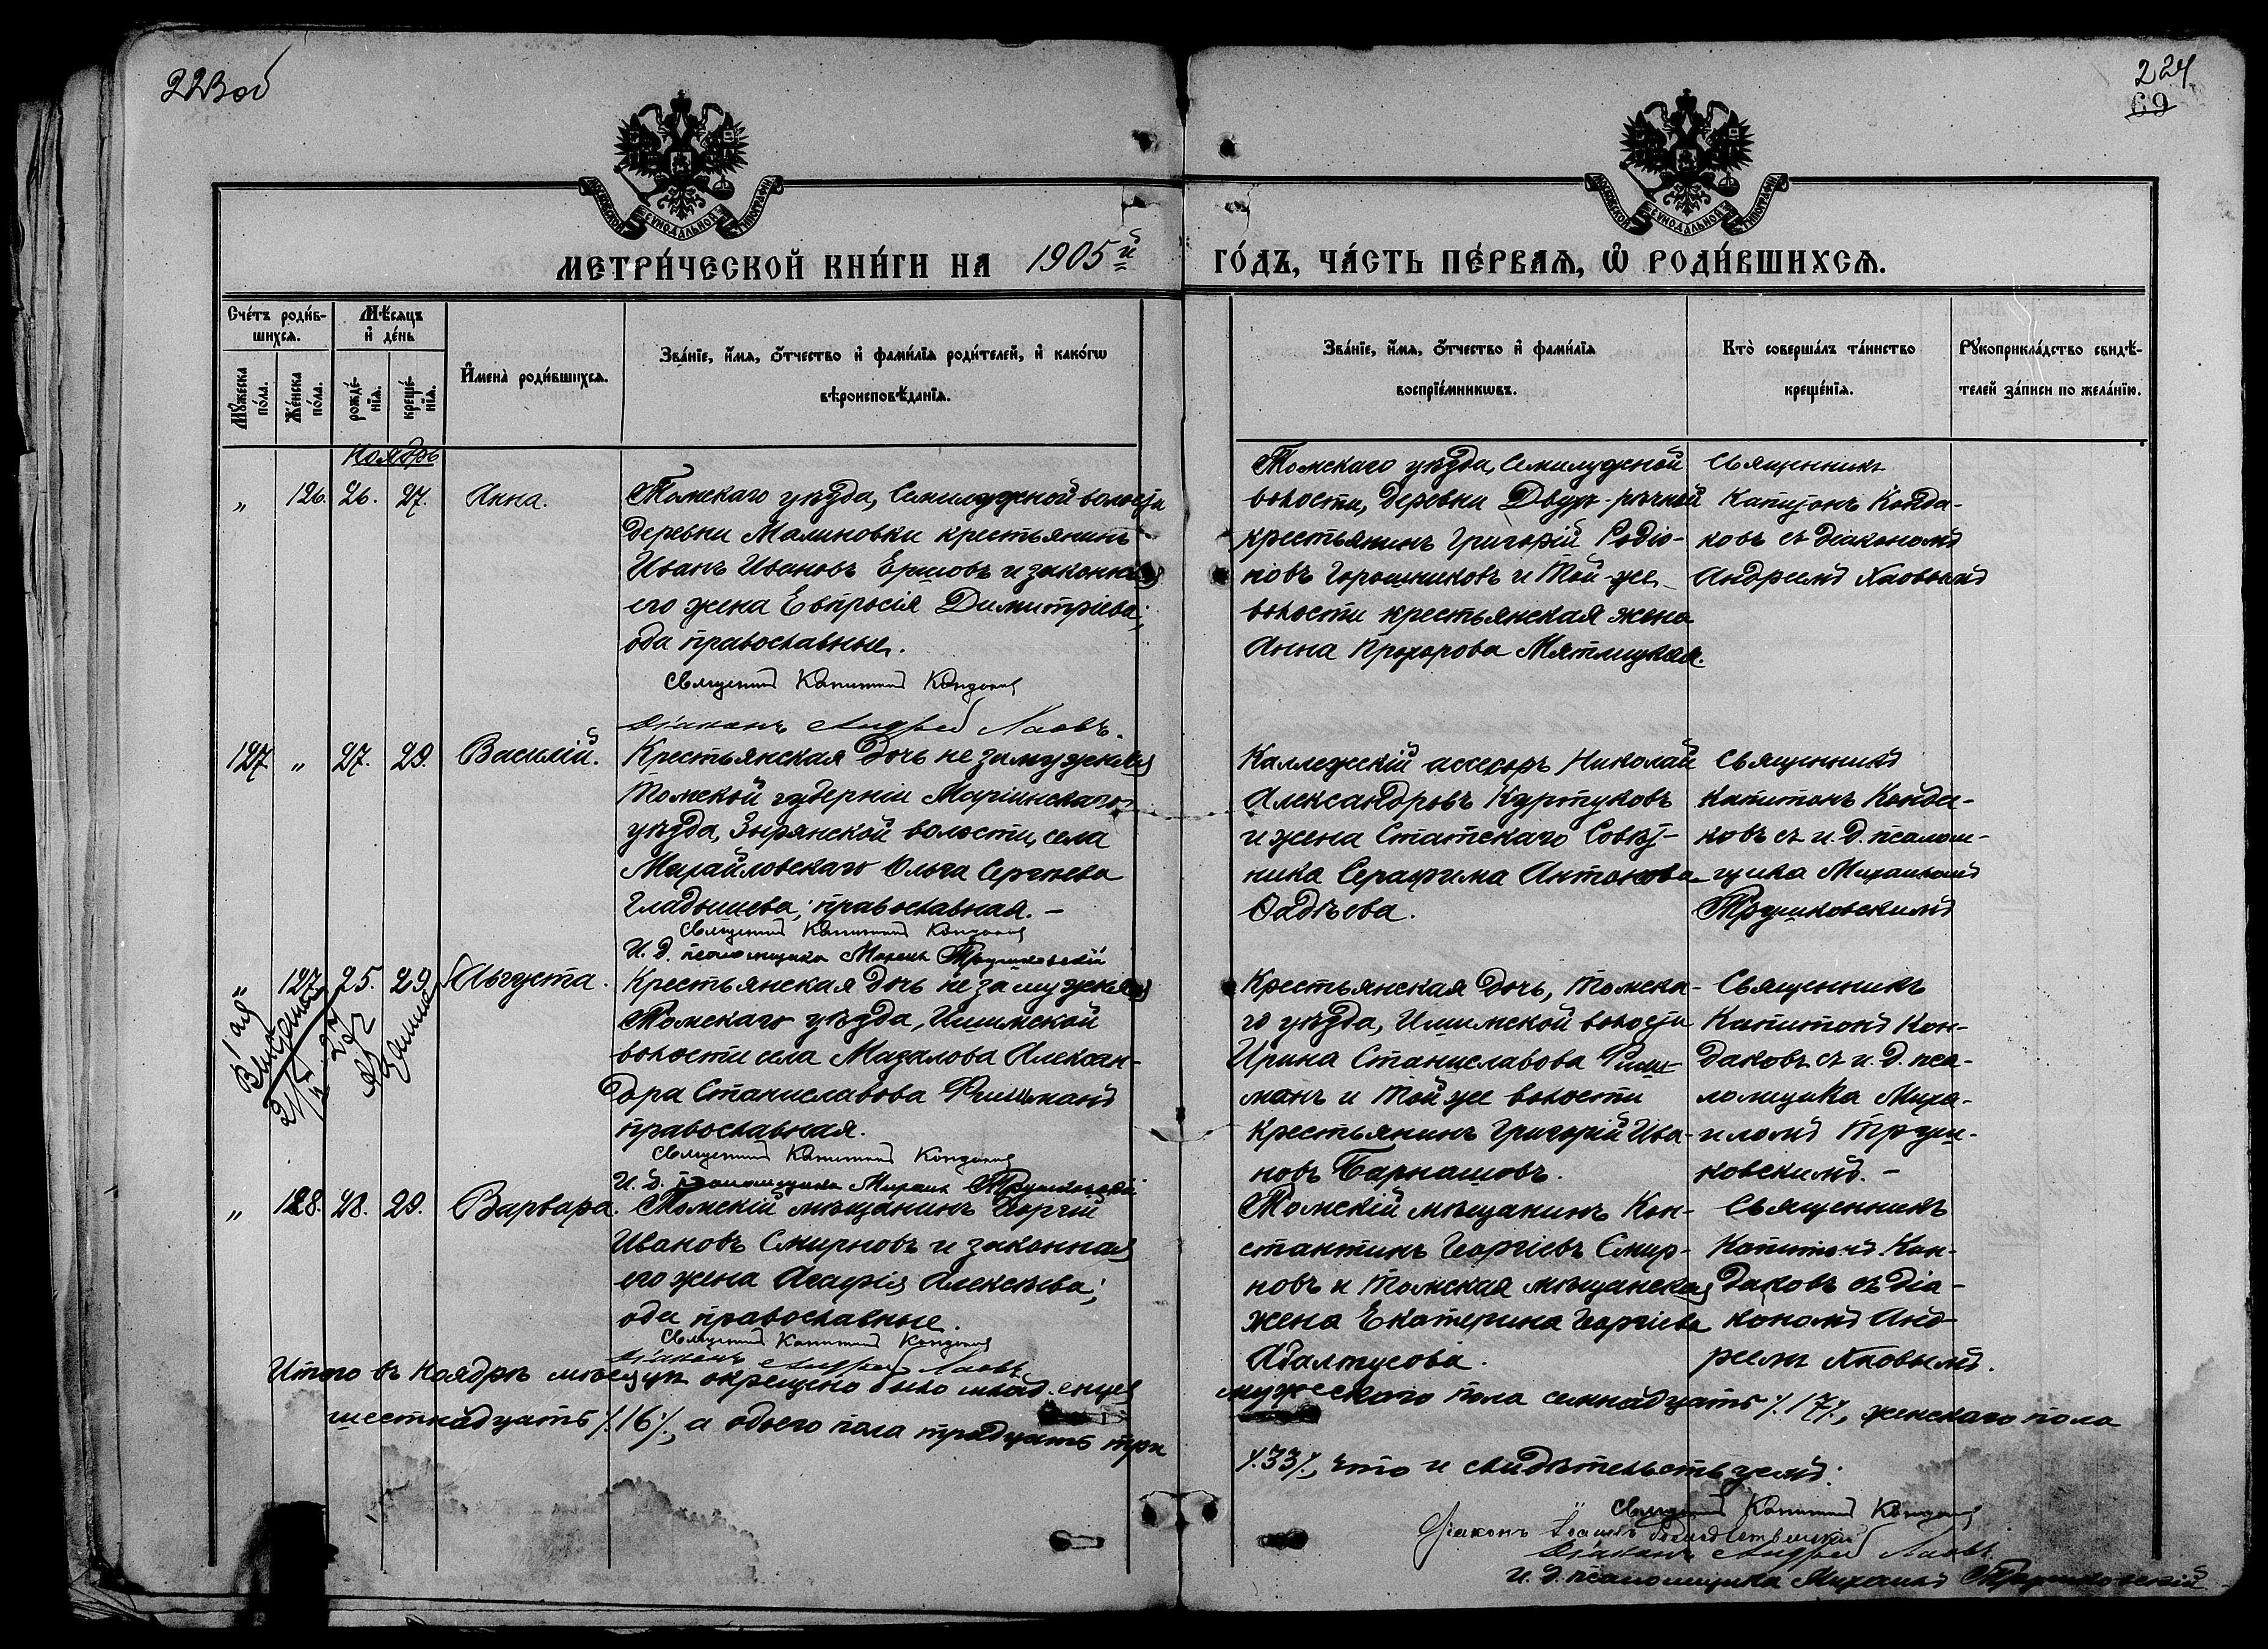 223 об
224
69
МОСКОВСКОЙ СѴНОДАЛЬНОЙ ТИПОГРАФІИ
МОСКОВСКОЙ СѴНОДАЛЬНОЙ ТИПОГРАФІИ
МЕТРИ́ЧЕСКОЙ КНИ́ГИ НА 1905й ГО́ДЪ, ЧА́СТЬ ПЕ́РВАѦ, Ѡ҆ РОДИ́ВШИХСѦ.
Сче́тъ роди́в-
шихсѧ.
Мѣ́сѧцъ
и҆ де́нь
Мꙋ́жеска
по́ла.
Же́нска
по́ла.
рожде́-
нїѧ.
креще́-
нїѧ.
И҆мена̀ роди́вшихсѧ.
Зва́нїе, и҆́мѧ, ѻ҆́тчество и҆ фами́лїѧ роди́телей, и҆ како́гѡ
вѣроисповѣ́данїѧ.
Зва́нїе, и҆́мѧ, ѻ҆́тчество и҆ фами́лїѧ
воспрїе́мникѡвъ.
Кто̀ соверша́лъ та́инство
креще́нїѧ.
Рꙋкоприкла́дство свидѣ́-
телей за́писи по жела́нїю.
Ноябрь
" 126. 26. 27. Анна.
Томскаго уѣзда, Семилужной волости
деревни Малиновки крестьянинъ
Иванъ Ивановъ Ершовъ и законная
его жена Евпрасія Димитріева;
оба православные.
Священникъ Капитонъ Кондаковъ
Діаконъ Андрей Ловъ.
Томскаго уѣзда, Семилужной
волости, деревни Двухъ-рѣчной
крестьянинъ Григорій Родіо-
новъ Горошниковъ и той-же
волости крестьянская жена
Анна Прохорова Мятлицкая.
Священникъ
Капитонъ Конда-
ковъ съ діакономъ
Андреемъ
127 " 27. 29. Василій.
Крестьянская дочь незамужняя
Томской губерніи Маріинскаго
уѣзда, Зырянской волости, села
Михайловскаго Ольга Сергѣева
Гладышева; православная. –
Священникъ Капитонъ Кондаковъ
И. д. псаломщика Михаилъ Трушковскій
Коллежскій ассесоръ Николай
Александровъ Куртуковъ
и жена Статскаго Совѣт-
ника Серафима Антонова
Фадѣева.
Священникъ
Капитонъ Конда-
ковъ съ и. д. псалом-
щика Михаиломъ
Трушковскимъ
" 127. 25. 29. Августа.
Крестьянская дочь незамужняя
Томскаго уѣзда, Ишимской
волости села Мазалова Алексан-
дра Станиславова Фишманъ
православная.
Священникъ Капитонъ Кондаковъ
И. д. псаломщика Михаилъ Трушковскій
Крестьянская дочь, Томска-
го уѣзда, Ишимской волости
Ирина Станиславова Фиш-
манъ и той же волости
крестьянинъ Григорій Ива-
новъ Барнашовъ.
Священникъ
Капитонъ Кон-
даковъ съ и. д. пса-
ломщика Миха-
иломъ Труш-
ковскимъ. –
" 128. 28. 29. Варвара.
Томскій мѣщанинъ Георгій
Ивановъ Смирновъ и законная
его жена Агафія Алексѣева;
оба православные.
Священникъ Капитонъ Кондаковъ
Діаконъ Андрей Ловъ
Томскій мѣщанинъ Кон-
стантинъ Георгіевъ Смир-
новъ и Томская мѣщанская
жена Екатерина Георгіева
Абалтусова.
Священникъ
Капитонъ Кон-
даковъ съ діа-
кономъ Анд-
реемъ
Итого въ Ноябрѣ мѣсяцѣ окрещено было младенцевъ мужескаго пола семнадцать ٪ 17 ٪, женскаго пола
шестнадцать ٪ 16 ٪, а обоего пола тридцать три ٪ 33 ٪, что и свидѣтельствуемъ:
Священникъ Капитонъ Кондаковъ
Діаконъ
Діаконъ Андрей Ловъ.
И. д. псаломщика Михаилъ Трушковскій